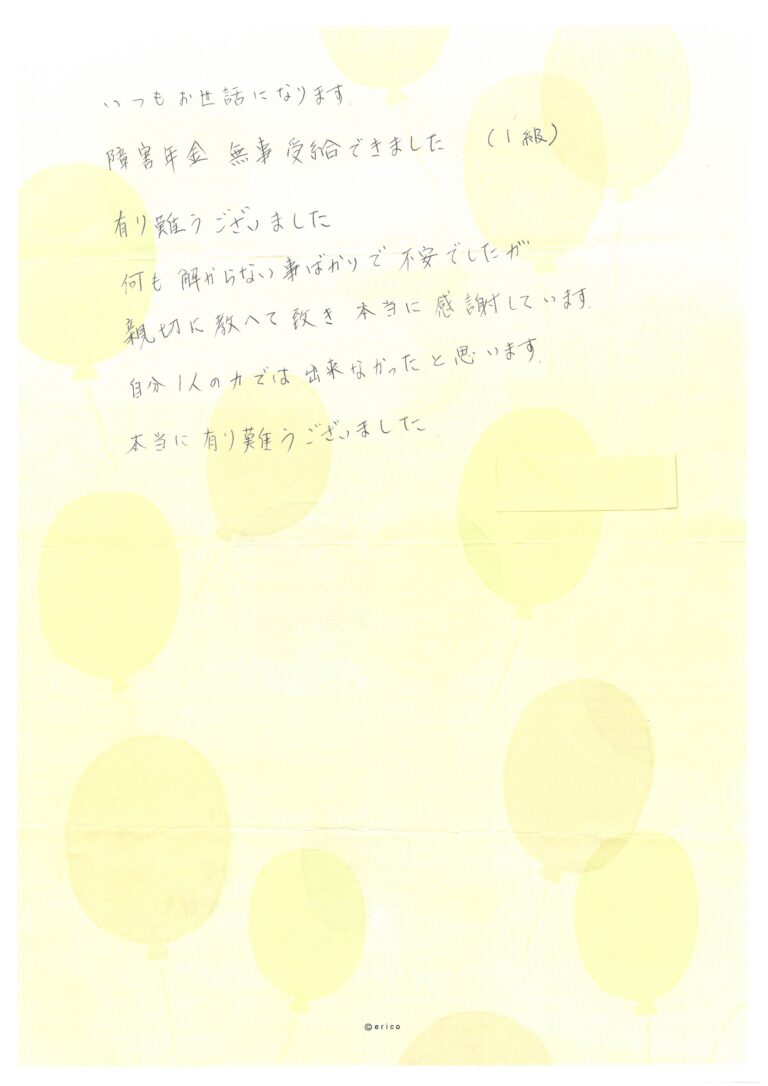 いつもお世話になります.
障害年金 無事 受給できました. (1級)
有り難うございました
何も 解からない事ばかりで 不安でしたが
親切に 教へて 致き 本当に 感謝しています.
自分1人の力では 出来なかったと思います.
本当に 有り難うございました
©erico